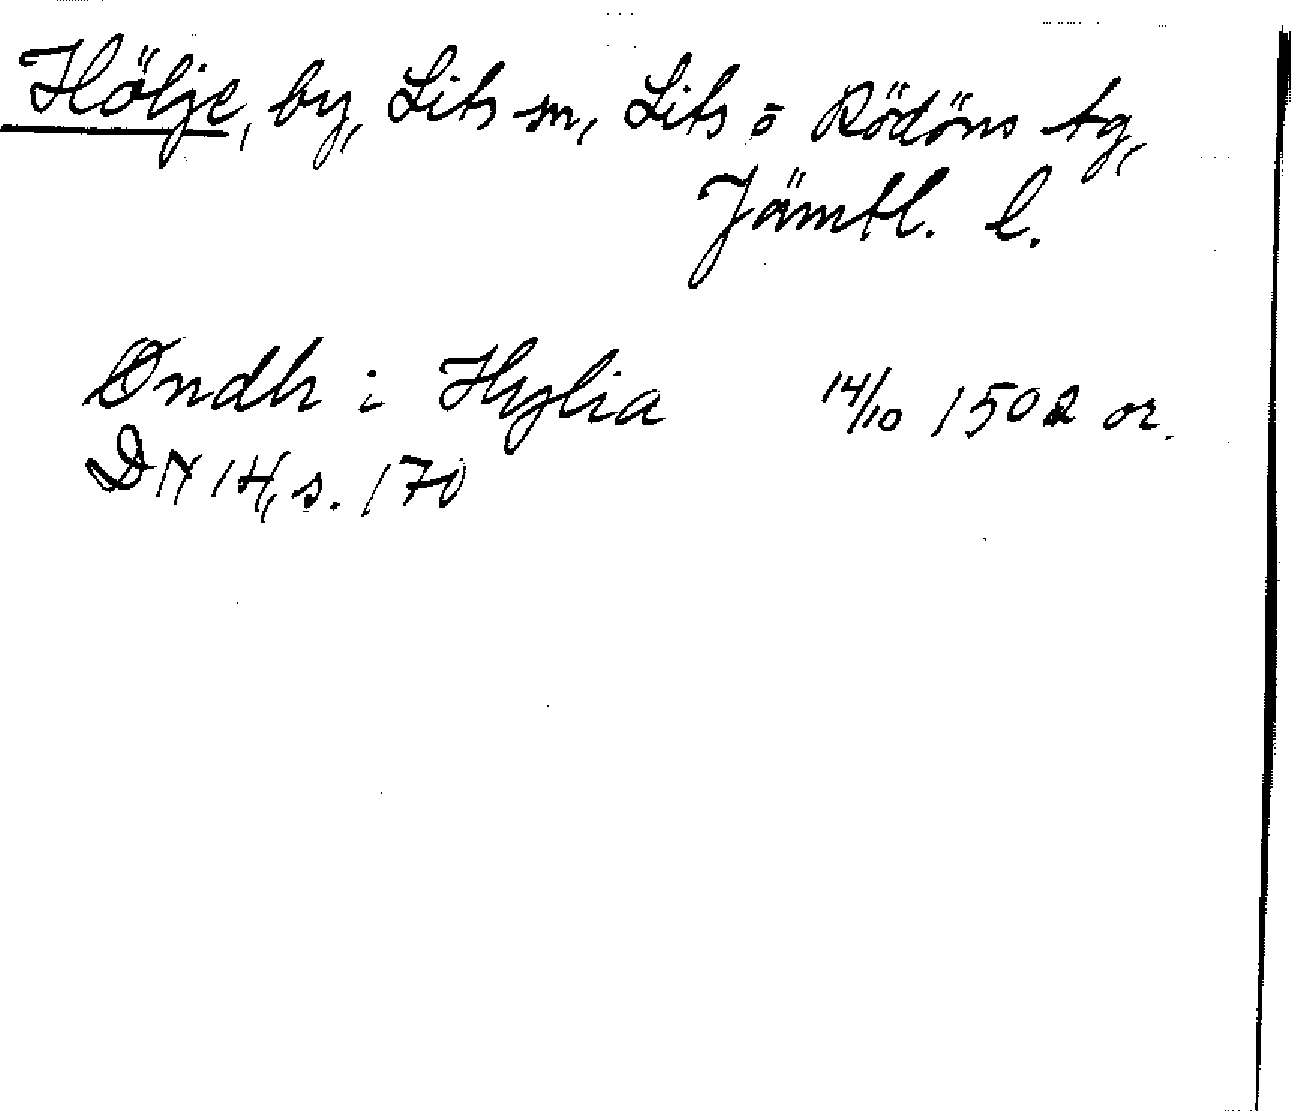 Hölje, by, Lits sn, Lits o Rödöns tg,
Jämtl. l.
Øndh i Hylia 14/10 1502 or.
DN 14, s. 170